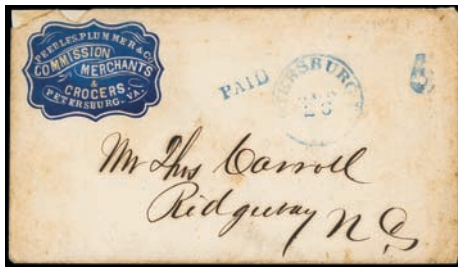 PEEBLES, PLUMMER & CO.
COMMISSION
MERCHANTS
&
GROCERS,
PETERSBURG, VA.
PAID
TERSBURG
26
5
Mr Thos Carroll
Ridgeway N C